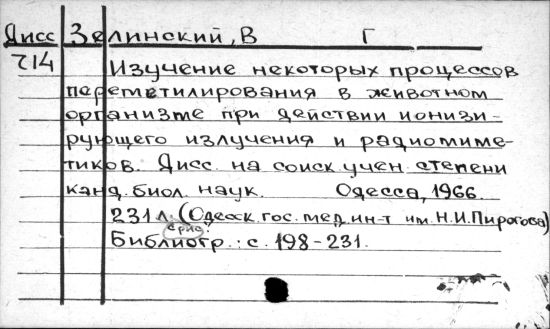 Дисс Зелинский, В Г
714 Изучение некоторых процессов
переметилирования в животном
организме при действии ионизи-
рующего излучения и радиомиме-
тиков. Дисс. на соиск учен. степени
канд. биол. наук. Одесса, 1966.
231 л. (Одесск. гос. мед. ин-т им. Н.И. Пирогова)
Библиогр.: с. 198-231.